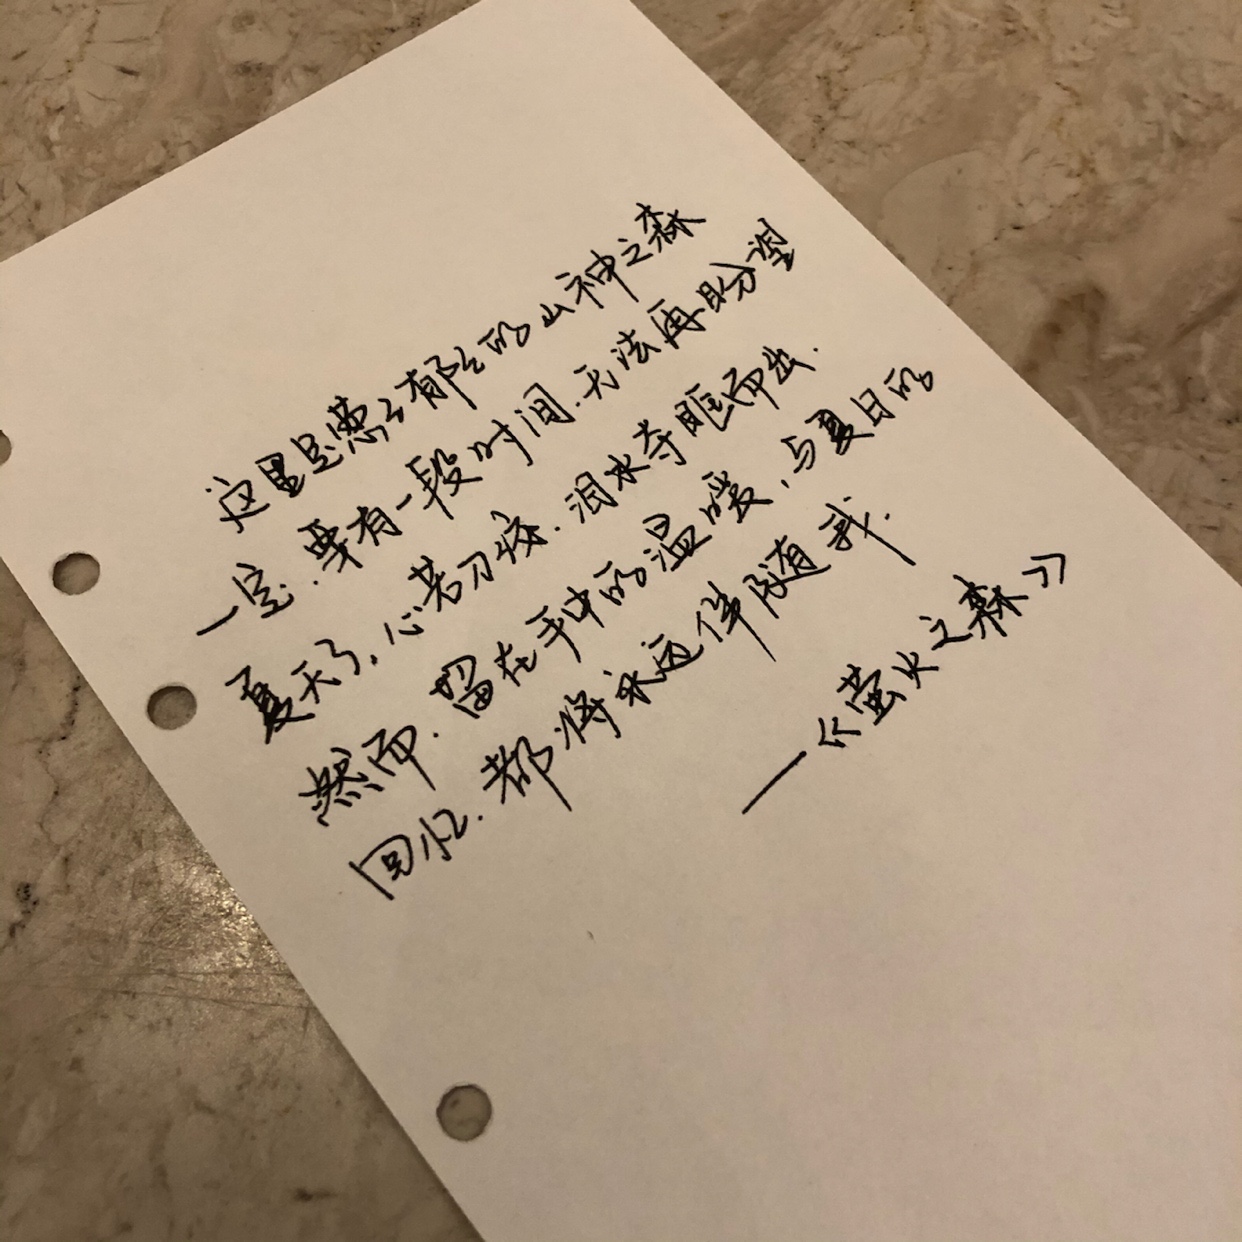 这里是葱々郁々的山神之森
一定.要有一段时间.无法再盼望
夏天了.心若刀绞.泪水夺眶而出.
然而.留在手中的温暖.与夏日的
回忆.都将永远伴随着我.
—《萤火之森》